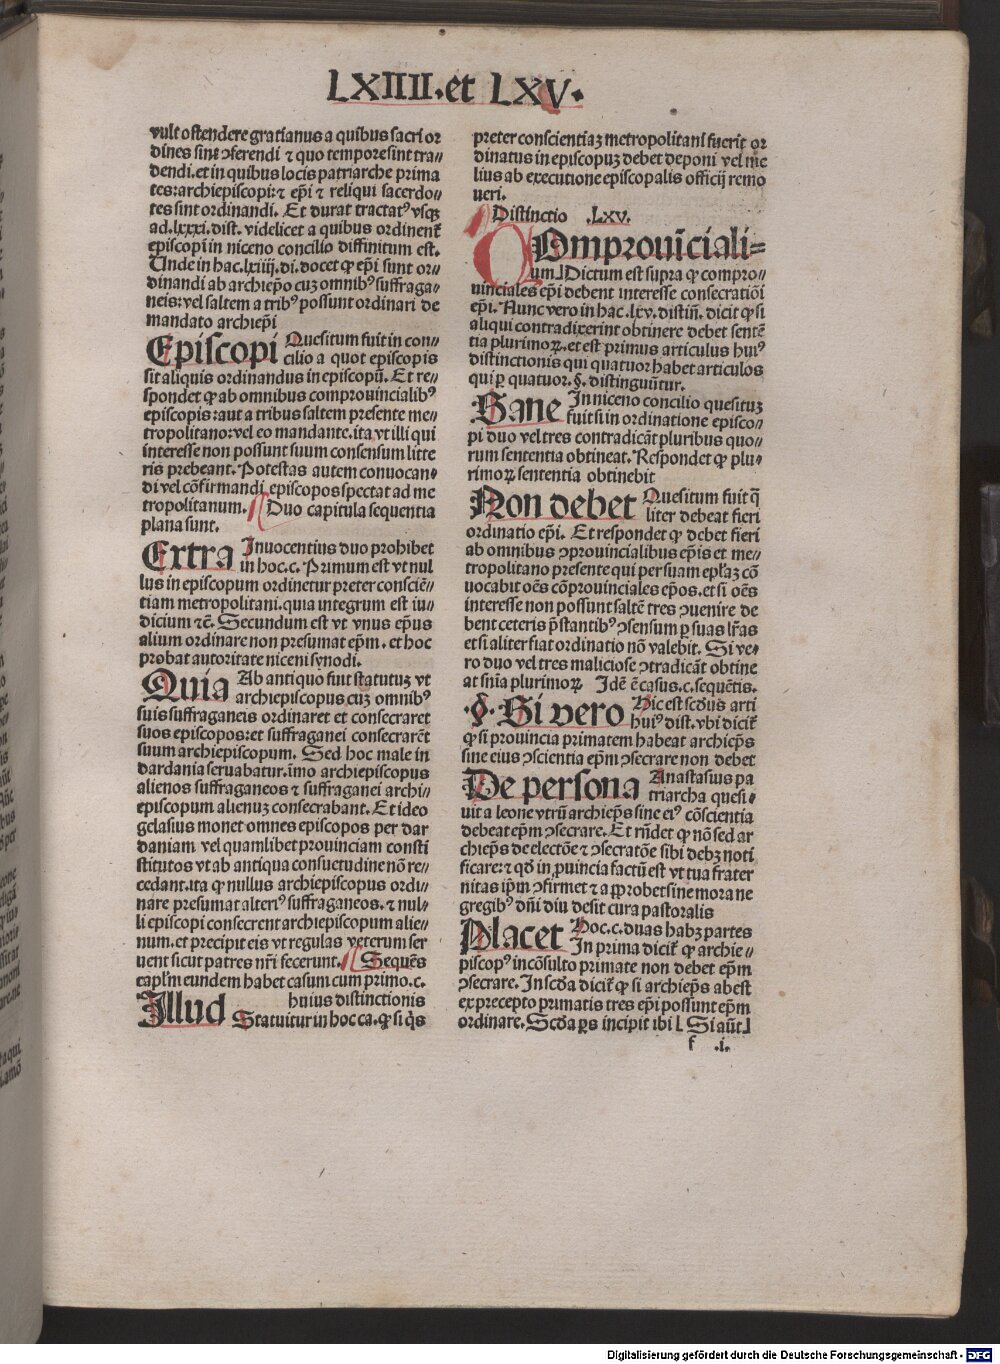 LXIIII.et LXV.
vult ostendere gratianus a quibus sacri or
dines sint ↄferendi ⁊ quo tempore sint tra⸗
dendi.et in quibus locis patriarche prima
tes:archiepiscopi:⁊ ep̄i ⁊ reliqui sacerdo⸗
tes sint ordinandi. Et durat tractatꝰ vsqꝫ
ad.lxxxi.dist. videlicet a quibus ordinent̄
episcopi in niceno concilio diffinitum est.
Unde in hac.lxiiij.di.docet ꝙ ep̄i sunt or⸗
dinandi ab archiep̄o cuꝫ omnibꝰ suffraga⸗
neis:vel saltem a tribꝰ possunt ordinari de
mandato archiep̄i
Episcopi Quesitum fuit in con⸗
cilio a quot episcopis
sit aliquis ordinandus in episcopū. Et re⸗
spondet ꝙ ab omnibus comprouincialibꝰ
episcopis:aut a tribus saltem presente me⸗
tropolitano:vel eo mandante.ita vt illi qui
interesse non possunt suum consensum litte
ris prebeant. Potestas autem conuocan⸗
di vel cōfirmandi episcopos spectat ad me
tropolitanum. ¶ Duo capitula sequentia
plana sunt.
Extra Innocentius duo prohibet
in hoc.c. Primum est vt nul
lus in episcopum ordinetur preter conscīē⸗
tiam metropolitani.quia integrum est iu⸗
dicium ⁊c̄. Secundum est vt vnus ep̄us
alium ordinare non presumat ep̄m. et hoc
probat autoritate niceni synodi.
Quia Ab antiquo fuit statutuꝫ vt
archiepiscopus cuꝫ omnibꝰ
suis suffraganeis ordinaret et consecraret
suos episcopos:et suffraganei consecrarēt
suum archiepiscopum. Sed hoc male in
dardania seruabatur.imo archiepiscopus
alienos suffraganeos ⁊ suffraganei archi⸗
episcopum alienuꝫ consecrabant. Et ideo
gelasius monet omnes episcopos per dar
daniam vel quamlibet prouinciam consti
stitutos vt ab antiqua consuetudine nō re⸗
cedant.ita ꝙ nullus archiepiscopus ordi⸗
nare presumat alteriꝰ suffraganeos. ⁊ nul⸗
li episcopi consecrent archiepiscopum alie⸗
num.et precipit eis vt regulas veterum ser
uent sicut patres nr̄i fecerunt. ¶ Sequēs
capl̄m eundem habet casum cum primo.c.
Illud huius distinctionis
Statuitur in hoc ca.ꝙ si q̄s
preter conscientiaꝫ metropolitani fuerit or
dinatus in episcopuꝫ debet deponi vel me
lius ab executione episcopalis officij remo
ueri.
¶ Distinctio .Lxv.
QUomprouīciali⸗
um⌋ Dictum est supra ꝙ compro⸗
uinciales ep̄i debent interesse consecratiōi
ep̄i. Nunc vero in hac.lxv.distin̄. dicit ꝙ si
aliqui contradixerint obtinere debet sentē
tia plurimoꝝ.et est primus articulus huiꝰ
distinctionis qui quatuor habet articulos
qui ꝑ quatuor.§. distinguūtur.
Sane In niceno concilio quesituꝫ
fuit si in ordinatione episco⸗
pi duo vel tres contradicāt pluribus quo⸗
rum sententia obtineat. Respondet ꝙ plu⸗
rimoꝝ sententia obtinebit
Non debet Quesitum fuit q̄
liter debeat fieri
ordinatio ep̄i. Et respondet ꝙ debet fieri
ab omnibus ↄprouincialibus ep̄is et me⸗
tropolitano presente qui per suam ep̄laꝫ cō
uocabit oēs cōprouinciales ep̄os.et si oēs
interesse non possunt saltē tres ↄuenire de
bent ceteris p̄stantibꝰ ↄsensum ꝑ suas lr̄as
et si aliter fiat ordinatio nō valebit. Si ve⸗
ro duo vel tres maliciose ↄtradicāt obtine
at sn̄ia plurimoꝝ Idē ē casus.c.sequētis.
.§. Si vero Hic est scd̄us arti
huiꝰ dist.vbi dicit̄
ꝙ si prouincia primatem habeat archiep̄s
sine eius ↄscientia ep̄m ↄsecrare non debet
De persona Anastasius pa
triarcha quesi⸗
uit a leone vtrū archiep̄s sine eiꝰ cōscientia
debeat ep̄m ↄsecrare. Et rn̄det ꝙ nō sed ar
chiep̄s de electōe ⁊ ↄsecratōe sibi debꝫ noti
ficare:⁊ qd̄ in ꝓuincia factū est vt tua frater
nitas ip̄m ↄfirmet ⁊ a ꝓrobet sine mora ne
gregibꝰ dn̄i diu desit cura pastoralis
Placet Hoc.c.duas habꝫ partes
In prima dicit̄ ꝙ archie⸗
piscopꝰ incōsulto primate non debet ep̄m
ↄsecrare. In scd̄a dicit̄ ꝙ si archiep̄s abest
ex precepto primatis tres ep̄i possunt ep̄m
ordinare. Scd̄a ꝑs incipit ibi ⌊ Si aūt⌋
f .i.
Digitalisierung gefördert durch die Deutsche Forschungsgemeinschaft - DFG